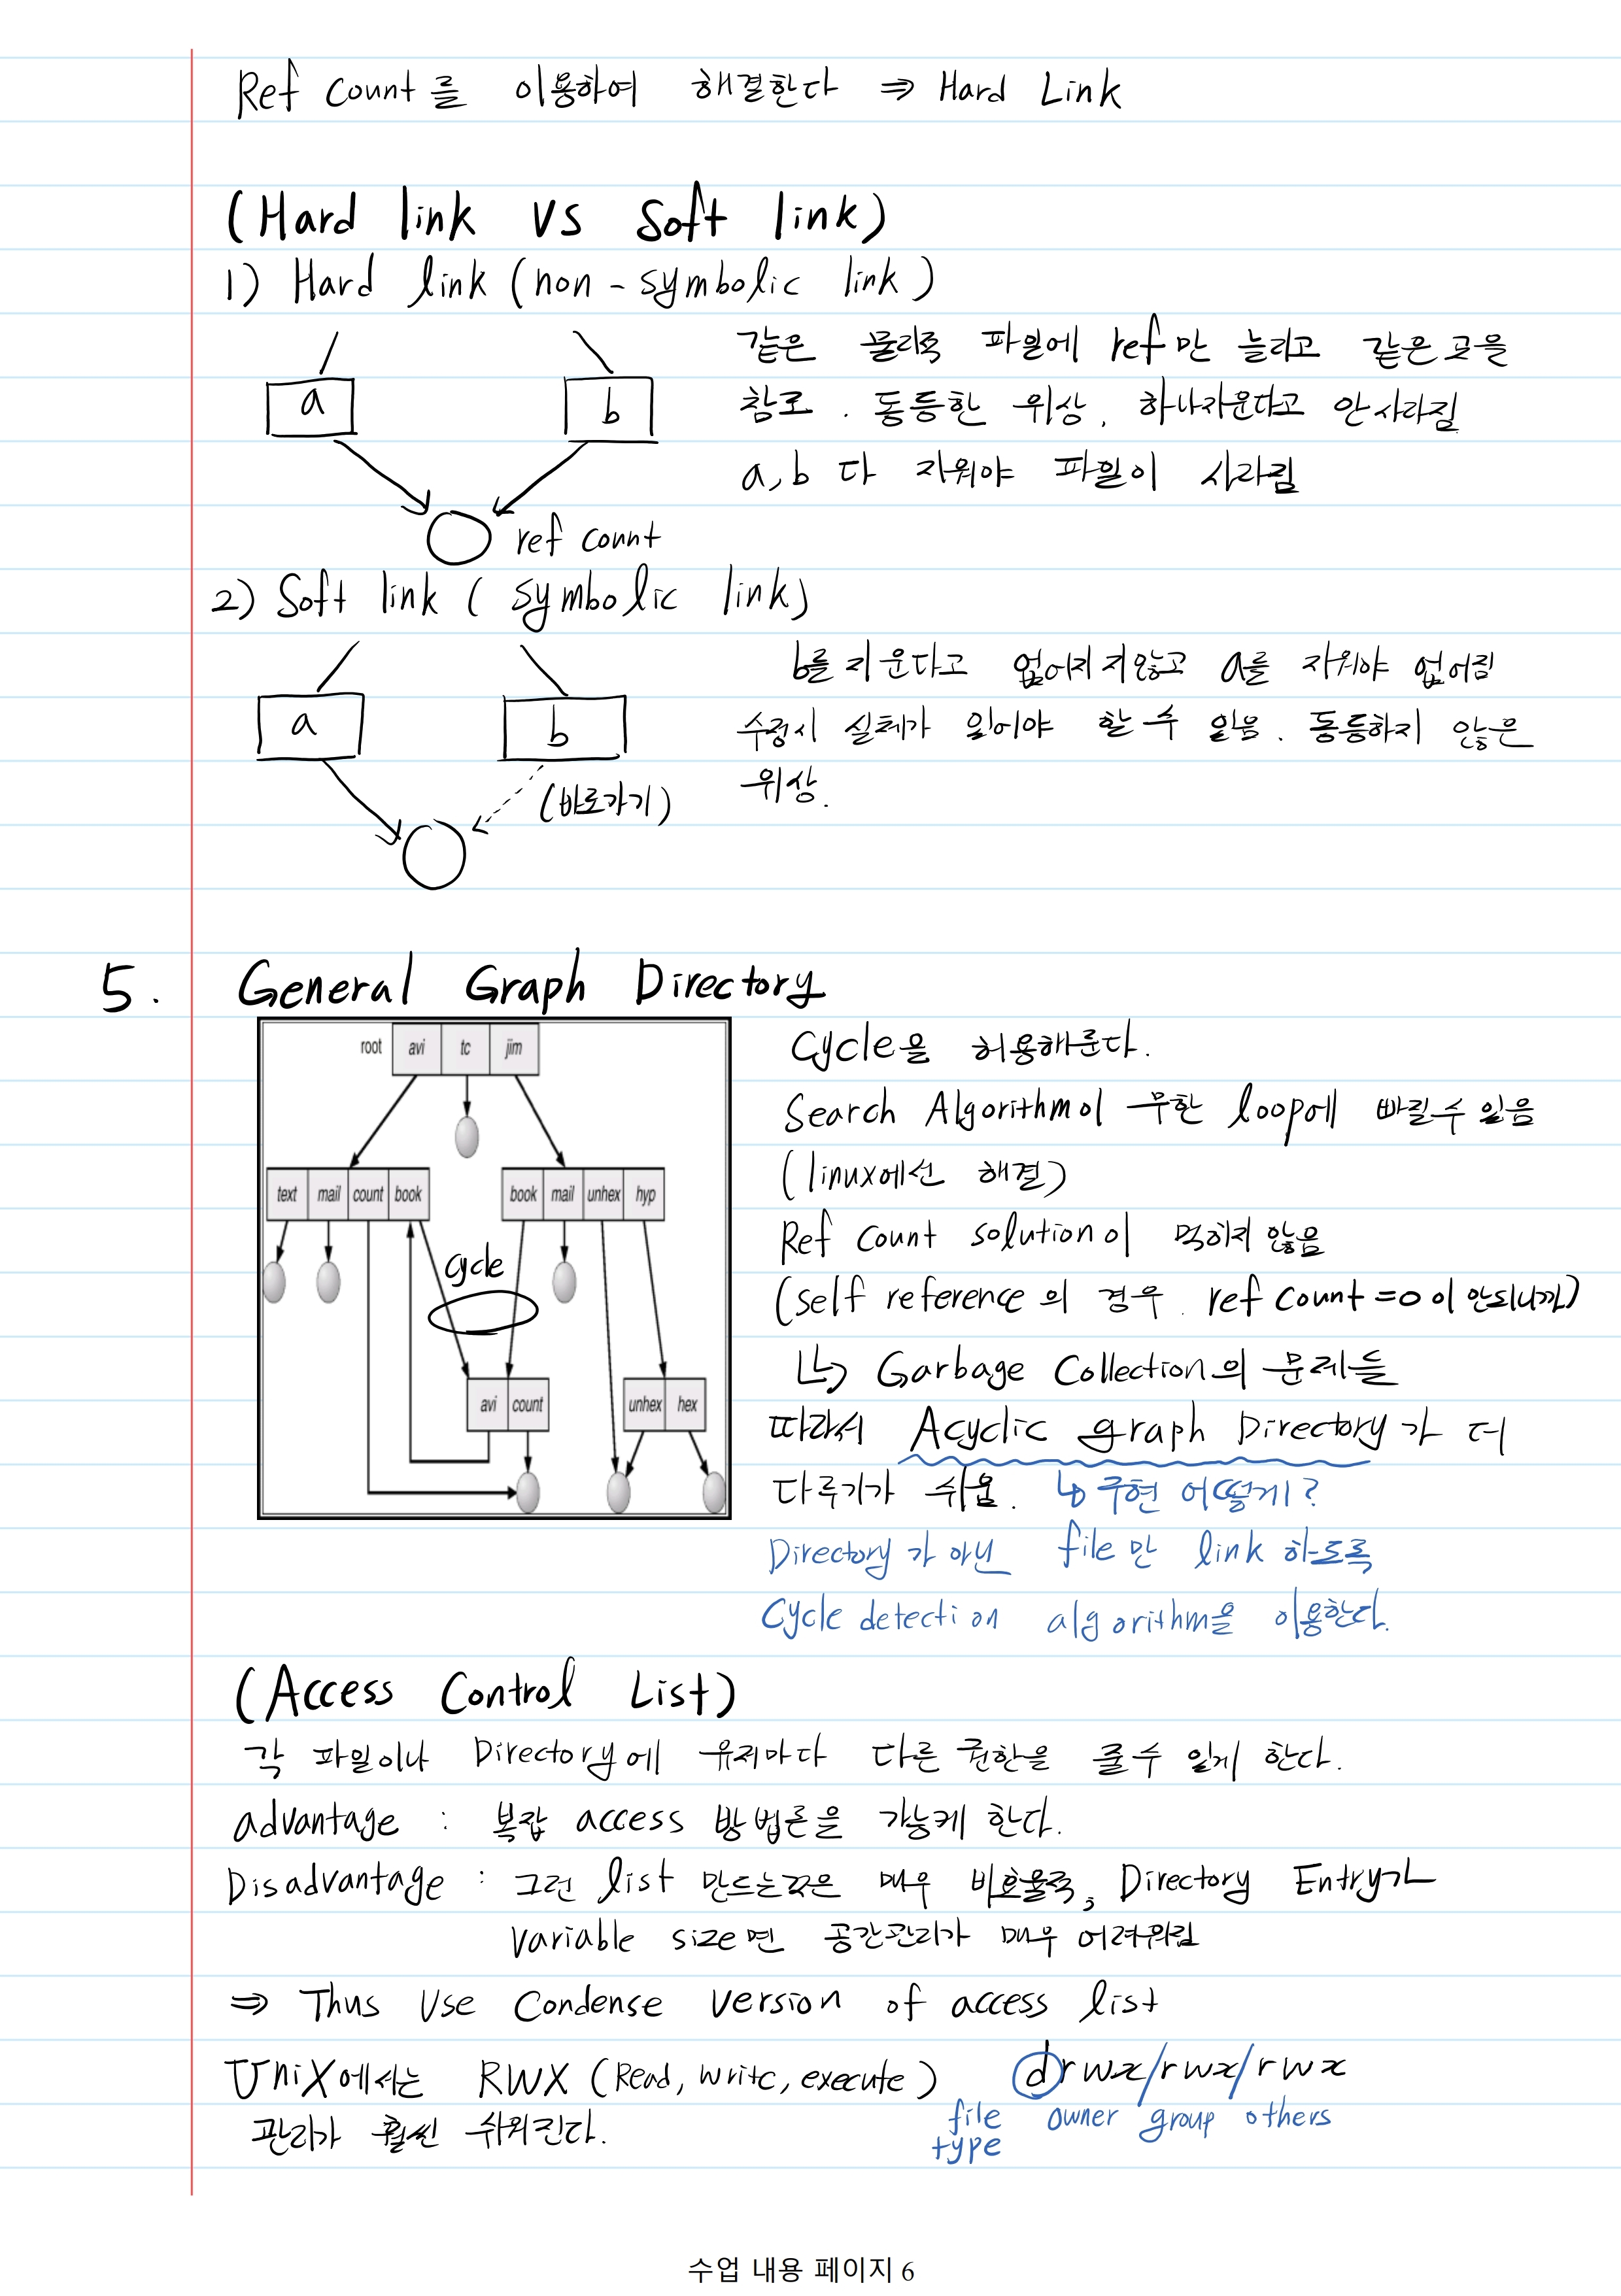 Ref count를 이용하여 해결한다 ⇒ Hard Link
(Hard link vs soft link)
1) Hard link (non-symbolic link)
같은 물리적 파일에 ref만 늘리고 같은 곳을
참조. 동등한 위상, 하나지운다고 안사라짐
a, b 다 지워야 파일이 사라짐
a
b
ref count
2) Soft link (symbolic link)
b를 지운다고 없어지지않고 a를 지워야 없어짐
수정시 실체가 있어야 할 수 있음. 동등하지 않은
위상.
a
b
(바로가기)
5. General Graph Directory
root avi tc jim
text mail count book
book mail unhex hyp
cycle
avi count
unhex hex
Cycle을 허용해준다.
Search Algorithm이 무한 loop에 빠질수 있음
(linux에선 해결)
Ref count solution이 먹히지 않음
(self reference의 경우. ref count=0이 안되니까)
↳ Garbage Collection의 문제들
따라서 Acyclic graph Directory가 더
다루기가 쉬움. ↳ 구현 어떻게?
Directory가 아닌 file만 link 하도록
Cycle detection algorithm을 이용한다.
(Access Control List)
각 파일이나 Directory에 유저마다 다른 권한을 줄수 있게 한다.
advantage : 복잡 access 방법론을 가능케 한다.
Disadvantage : 그런 list 만드는것은 매우 비효율적, Directory Entry가
variable size면 공간관리가 매우 어려워짐
⇒ Thus Use Condense version of access list
Unix에서는 RWX (Read, write, execute) drwx/rwx/rwx
관리가 훨씬 쉬워진다.
file type owner group others
수업 내용 페이지 6